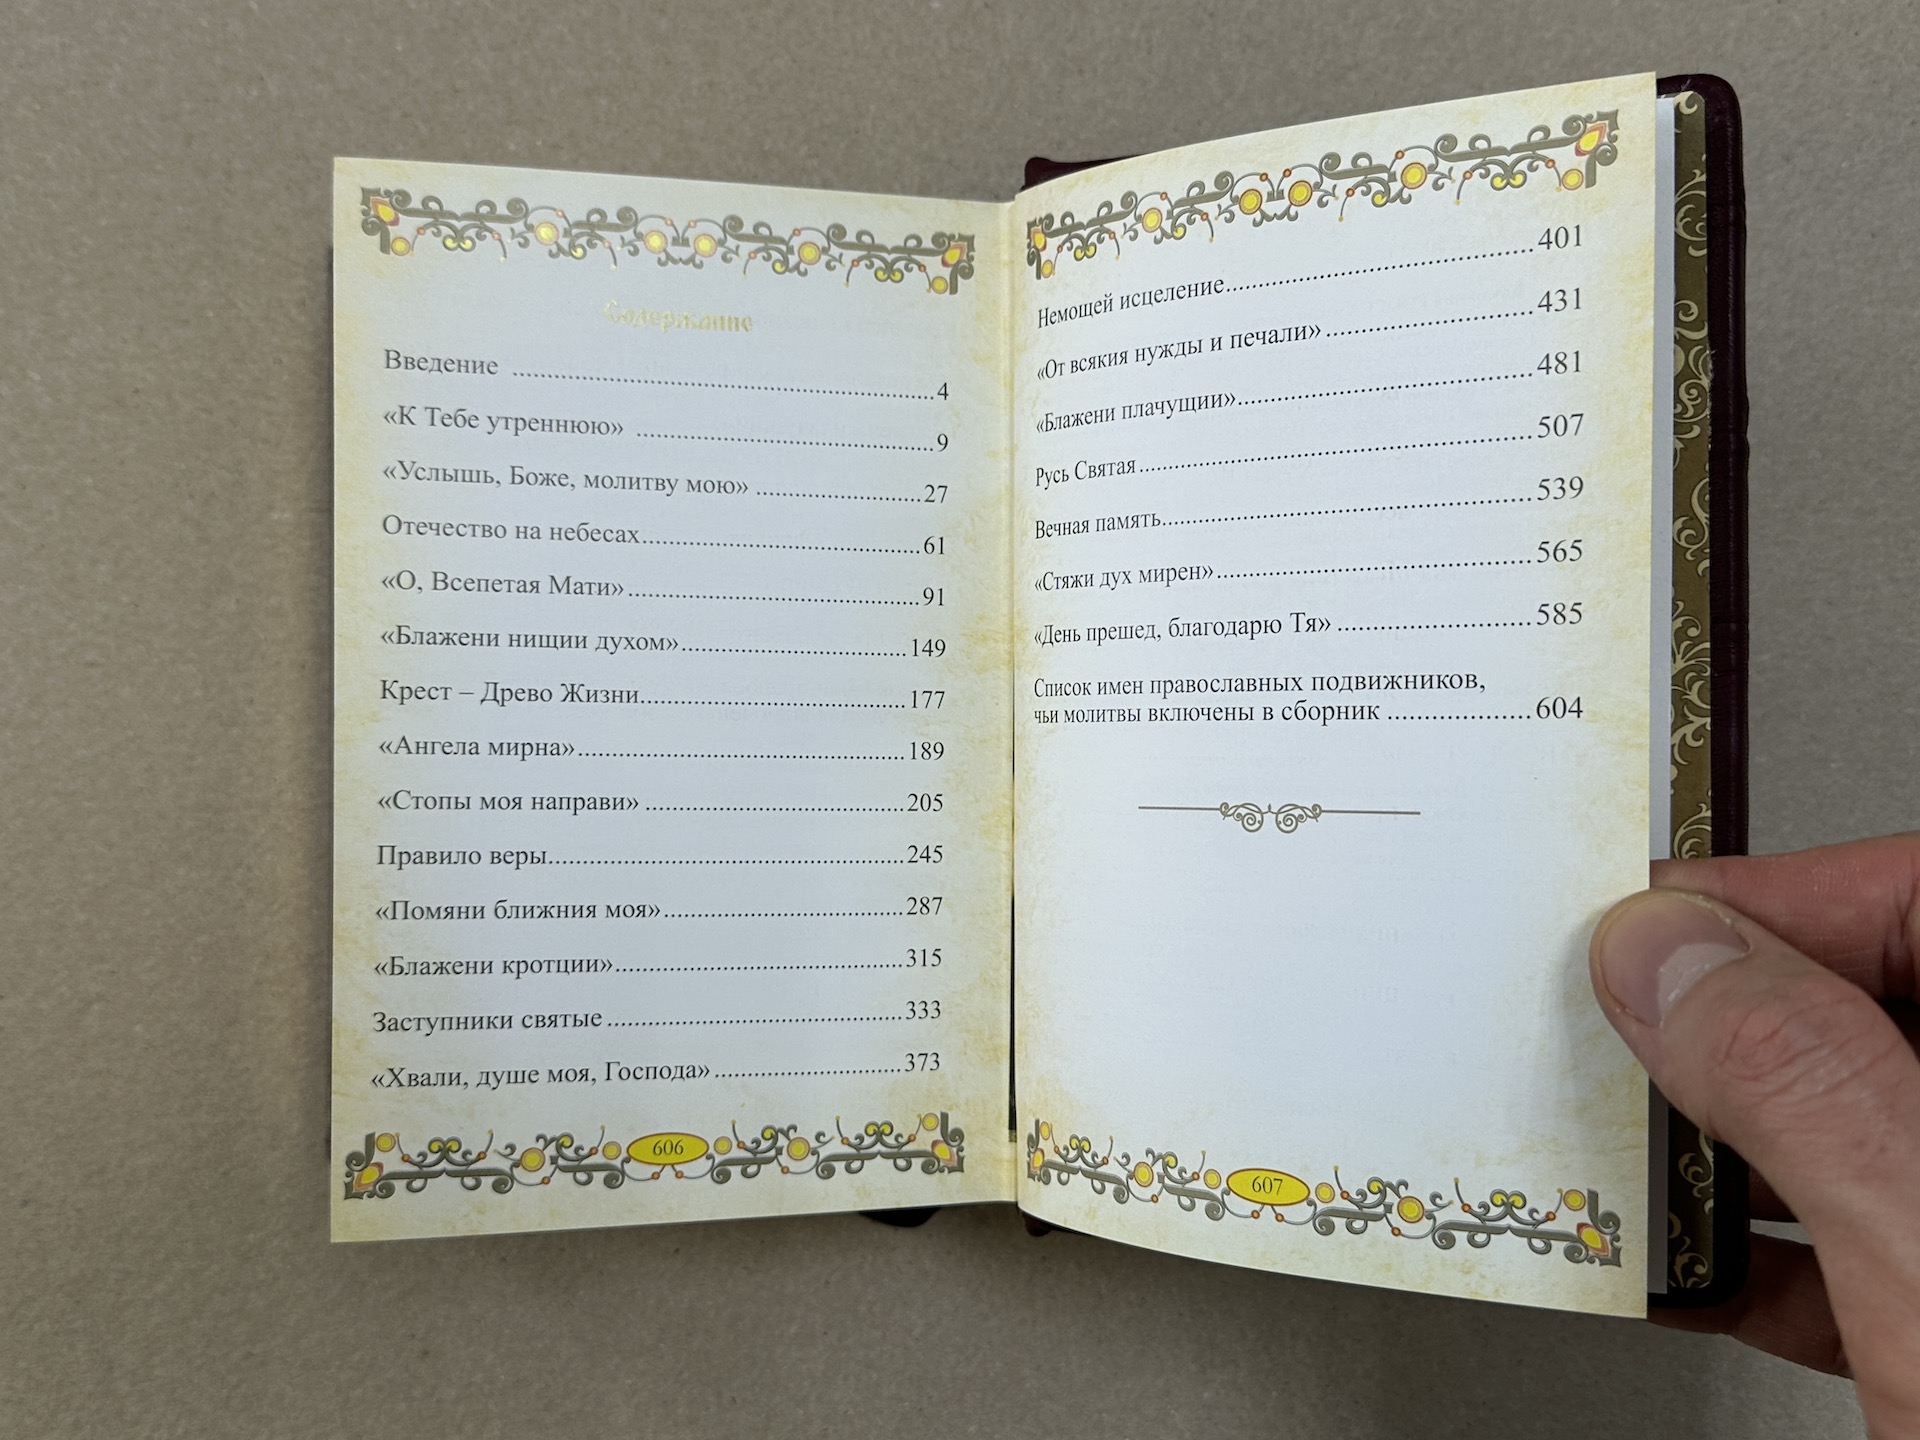 Содержание
Введение ........ 4
«К Тебе утреннюю» ........ 9
«Услышь, Боже, молитву мою» ........ 27
Отечество на небесах ........ 61
«О, Всепетая Мати» ........ 91
«Блажени нищии духом» ........ 149
Крест – Древо Жизни ........ 177
«Ангела мирна» ........ 189
«Стопы моя направи» ........ 205
Правило веры ........ 245
«Помяни ближния моя» ........ 287
«Блажени кротции» ........ 315
Заступники святые ........ 333
«Хвали, душе моя, Господа» ........ 373
606
Немощей исцеление ........ 401
«От всякия нужды и печали» ........ 431
«Блажени плачущии» ........ 481
Русь Святая ........ 507
Вечная память ........ 539
«Стяжи дух мирен» ........ 565
«День прешед, благодарю Тя» ........ 585
Список имен православных подвижников,
чьи молитвы включены в сборник ........ 604
607